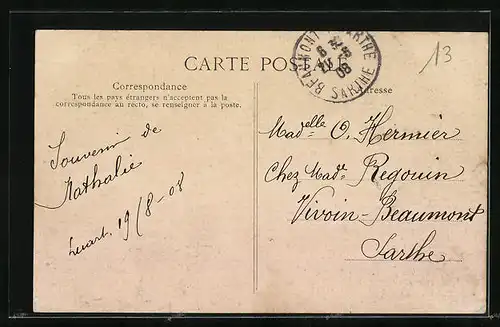 CARTE POSTALE
BEAUMONT S SARTHE
SARTHE
08
13
Correspondance
Tous les pays étrangers n'acceptent pas la
correspondance au recto, se renseigner a la poste.
Adresse
Souvenir de
Nathalie
19/8-08
Madelle O. Hermier
Chez Made Regouin
Vivoin-Beaumont
Sarthe